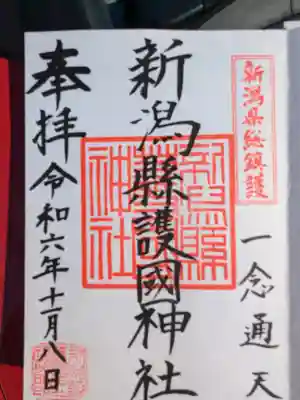 新潟県総鎮護
一念通天
新潟縣護國神社
奉拝
令和六年十一月八日